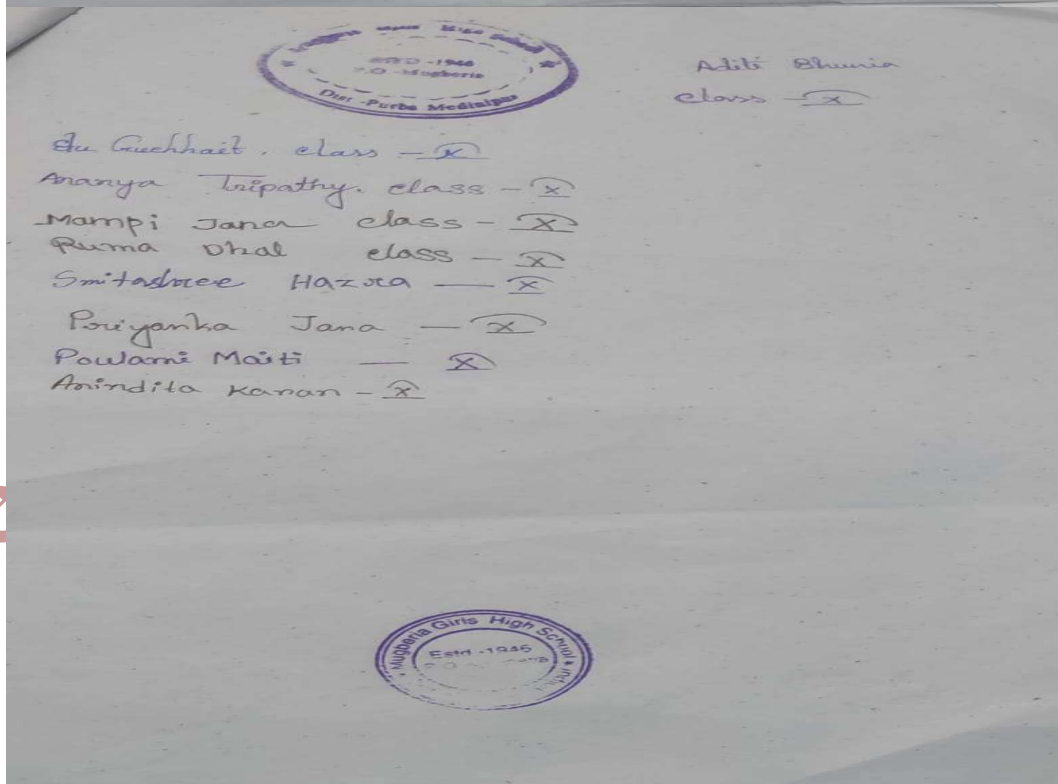 High School
ESTD -1946
P.O -Mugberia
Dist -Purba Medinipur
Aditi Bhunia
class - X
Guchhait. class - X
Ananya Tripathy. class - X
Mampi Jana class - X
Ruma Dhal class - X
Smitashree Hazra - X
Priyanka Jana - X
Poulami Maiti - X
Anindita Karan - X
Mugberia Girls High School
Estd -1946